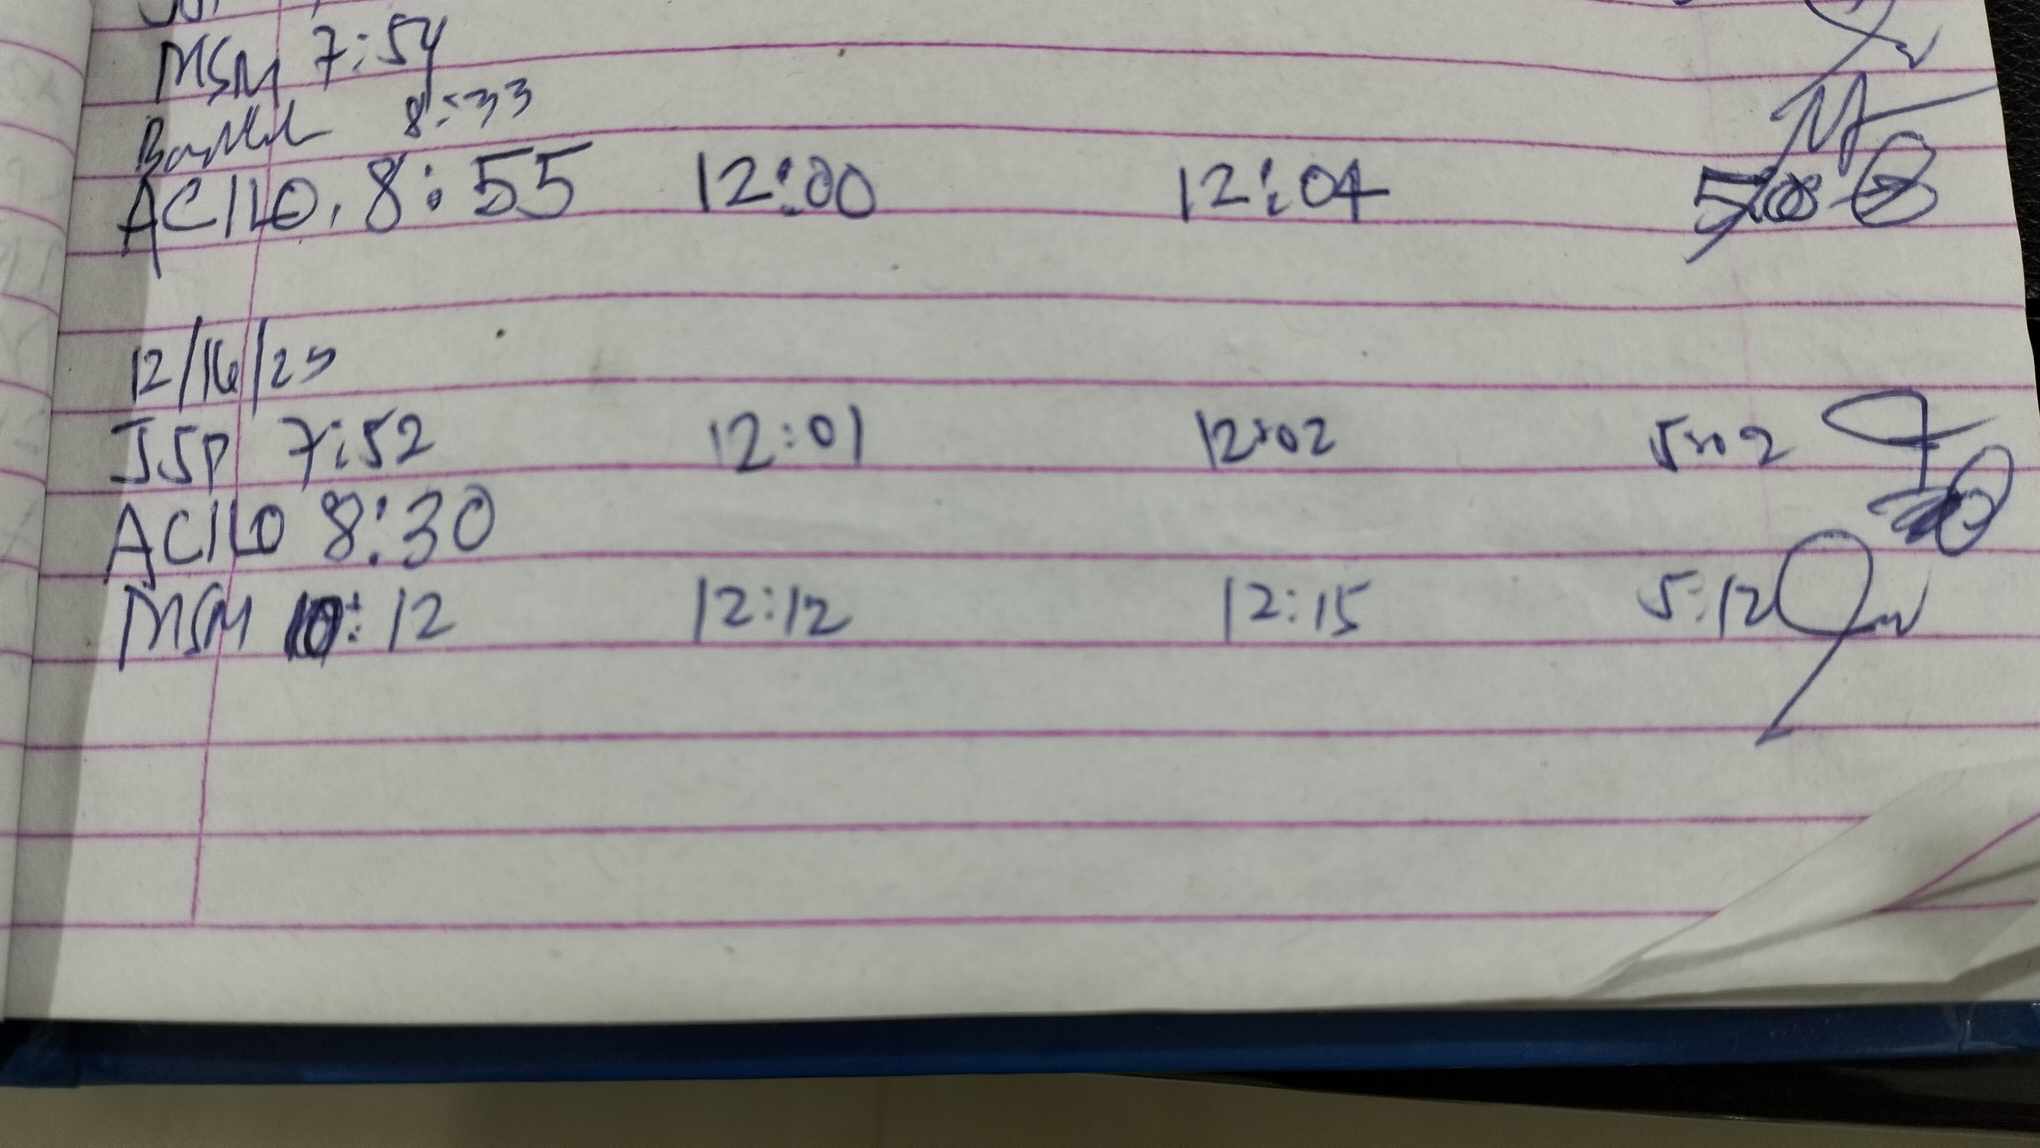 MSM 7:54
8:33
ACILO. 8:55 12:00 12:04 5:08
12/16/25
JSP 7:52 12:01 12:02 5:02
ACILO 8:30
MSM 10:12 12:12 12:15 5:12